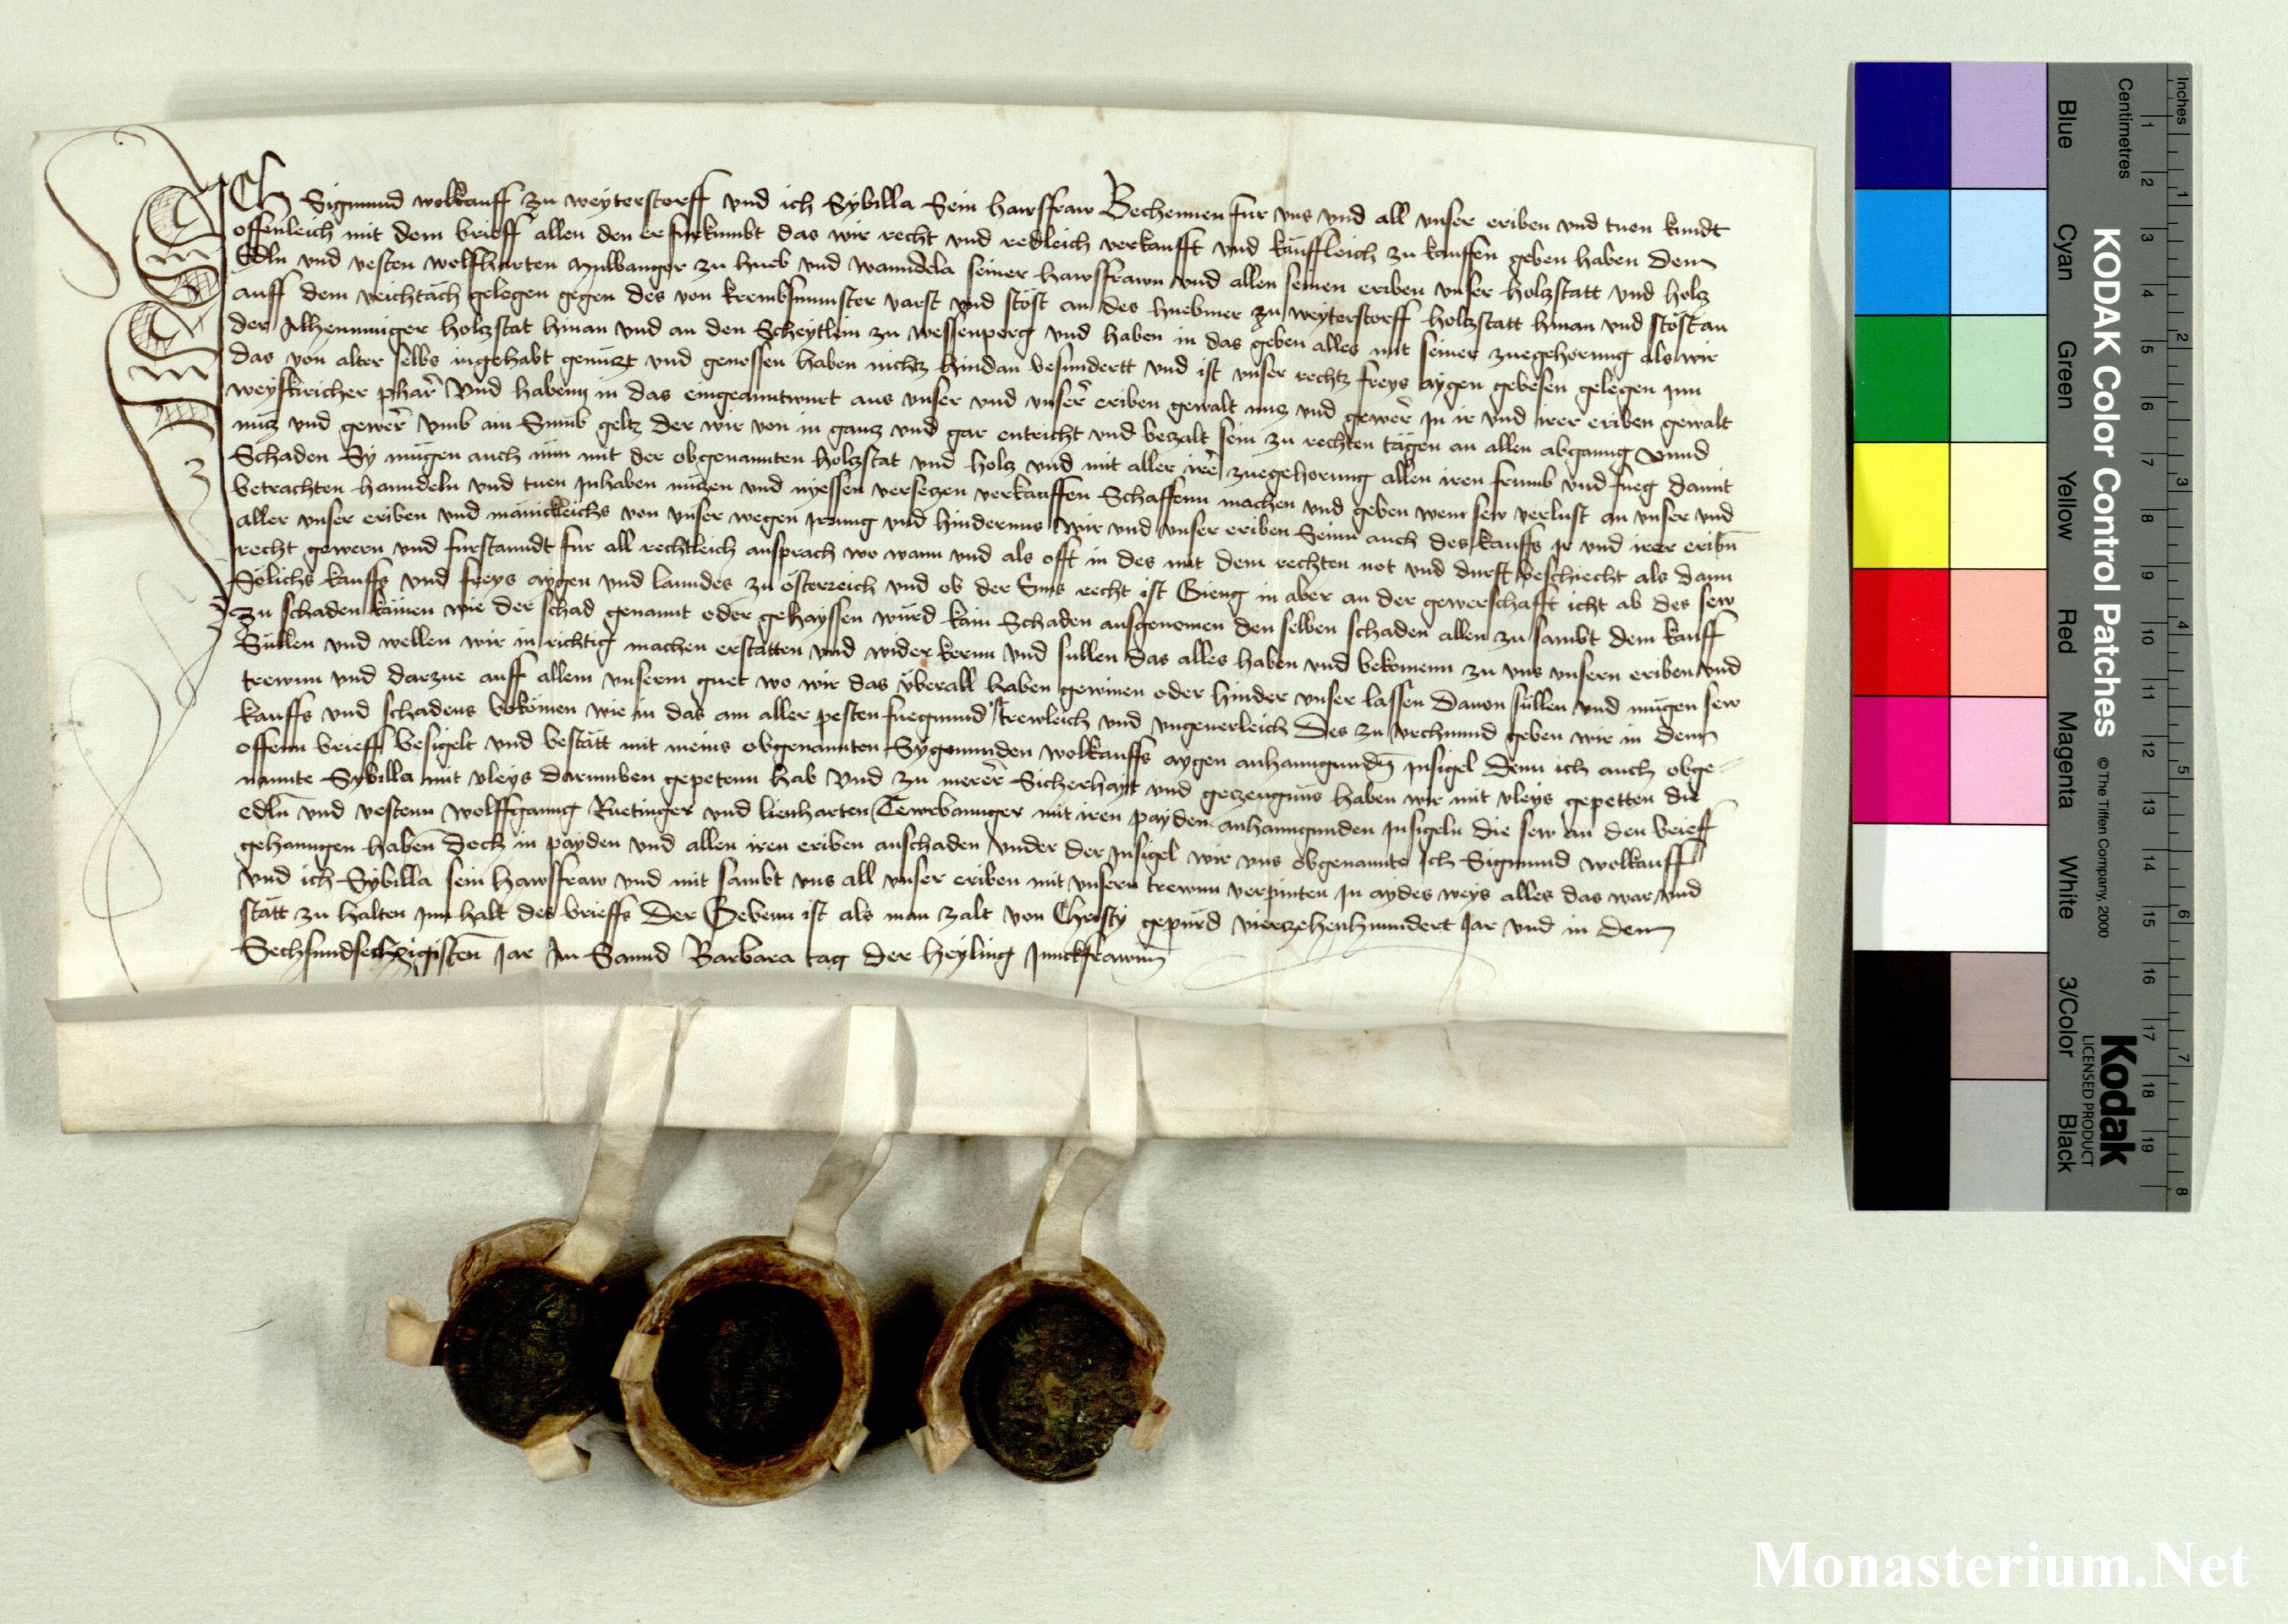 Ich Sigmund wolkauff zu weyterstorff vnd ich Sybilla Sein hawsfraw Bechennen fur vns vnd all vnser eriben vnd tuen kundt
offenleich mit dem brieff allen den er furkumbt das wir recht vnd redleich verkaufft vnd kauffleich zu kauffen geben haben dem
Edln vnd vesten wolfharten zu hueb vnd wanndela seiner hawsfrawn vnd allen seinen eriben vnser holzstatt vnd holz
auff dem veichtach gelegen gegen des von krembsmunster varst vnd stöst an des huebmer zu weyterstorff holtzstatt hinan vnd stöst an
der holzstat hinan vnd an den Scheytlein zu wessenperg vnd haben in das geben alles mit seiner zuegehorung als wir
das von alter selbs ingehabt genüzt vnd genossen haben nichtz hindan besundertt vnd ist vnser rechtz freys aygen gebesen gelegen inn
weyskiricher pharr Vnd habenn in das eingeanntwurt aus vnser vnd vnser eriben gewalt nuz vnd gewer In ir vnd irer eriben gewalt
nuz vnd gewer Vmb ain Summ geltz der wir von in ganz vnd gar entricht vnd bezalt sein zu rechten tägen an allen abganng vnnd
Schaden Sy mügen auch nun mit der obgenannten holzstat vnd holz vnd mit aller irer zuegehorung allen iren frumb vnd fueg damit
betrachten hanndeln vnd tuen Inhaben nüzen vnd nyessen versezen verkauffen Schaffenn machen vnd geben wem sew verlust an vnser vnd
aller vnser eriben vnd mänickleichs von vnser wegen irrung vnd hindernus Wir vnd vnser eriben Seinn auch des kauffs ir vnd irer eribn
recht gewern vnd furstanndt fur all rechtleich ansprach wo wann vnd als offt in des mit dem rechten not vnd durft beschiecht als dann
Sölichs kauffs vnd freys aygen vnd lanndes zu österreich vnd ob der Enns recht ist Gieng in aber an der gewerschafft icht ab des sew
zu schaden kämen wie der schad genannt oder gehayssen würd kain Schaden ausgenomen den selben schaden allen zu sambt dem kauff
Süllen vnd wellen wir in richtig machen erstatten vnd wider kernn vnd sullen das alles haben vnd bekomenn zu vns vnsern eriben vnd
trewnn vnd darzue auff allem vnserm guet wo wir das überall haben gewinen oder hinder vnser lassen Dauon süllen vnd mügen sew
kauffs vnd schadens bekömen wie in das am aller pesten fuegund ist trewleich vnd vngeuerleich Des zu vrchunnd geben wir in denn
offenn brieff besigelt vnd bestätt mit meins obgenannten Sygmunden wolkauffs aygen anhanngundn Insigel Denn ich auch obge-
nannte Sybilla mit vleys darumben gepetenn hab Vnd zu merer Sicherhayt vnd geczeugnus haben wir mit vleys gepetten die
edln vnd vestenn Wolffganng Ruetinger vnd lienharten mit iren payden anhanngunden Insigeln die sew an den brieff
gehanngen haben Doch in payden vnd allen iren eriben anschaden Vnder der Insigel wir vns obgenannte ich Sigmund wolkauff
vnd ich Sybilla sein hawsfraw vnd mit sambt vns all vnser eriben mit vnsern trewnn verpinten In aydes weys alles das war vnd
stätt zu halten Inn halt des brieffs Der Gebenn ist als man zalt von Christy gepürd vierczehenhunndert Jar vnd in dem
Sechsundsechzigisten Jar An Sannd Barbara tag der heyling Junckfrawnn
KODAK Color Control Patches © The Tiffen Company, 2000
Kodak
LICENSED PRODUCT
Blue Cyan Green Yellow Red Magenta White 3/Color Black
Inches 1 2 3 4 5 6 7 8
Centimetres 1 2 3 4 5 6 7 8 9 10 11 12 13 14 15 16 17 18 19
Monasterium.Net